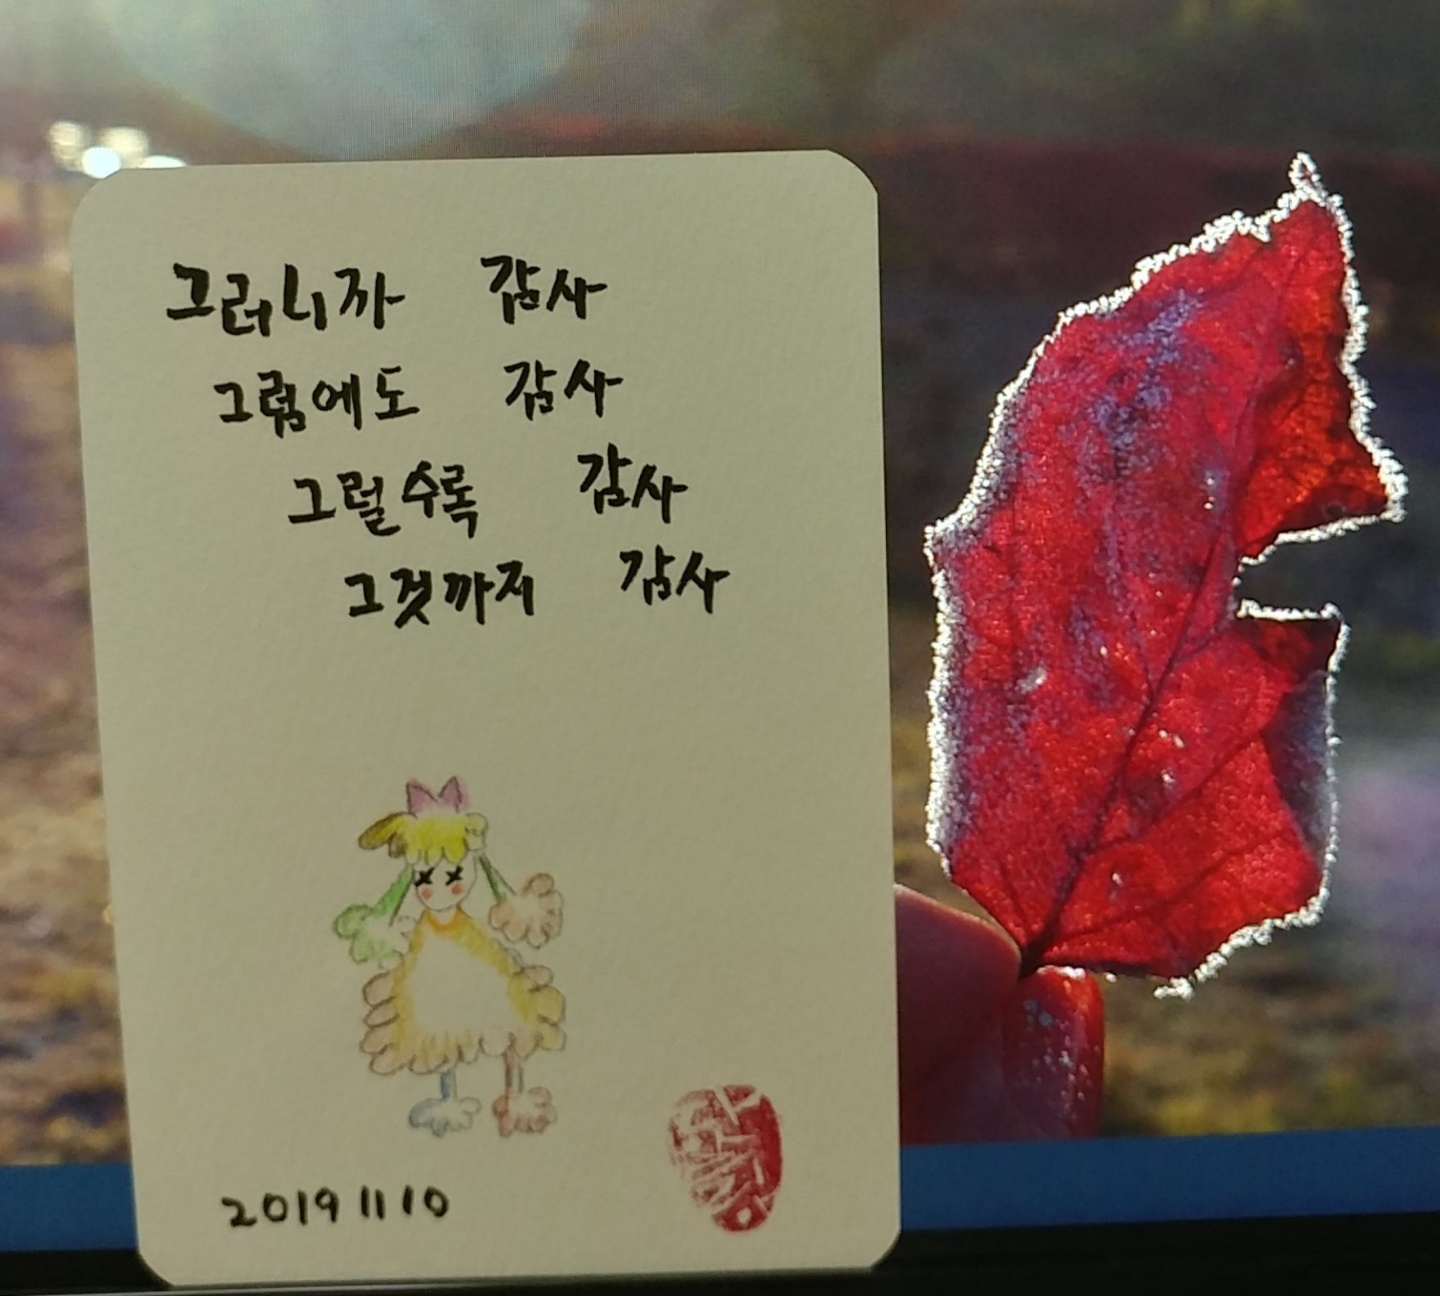 그러니까 감사
그럼에도 감사
그럴수록 감사
그것까지 감사
2019 11 10